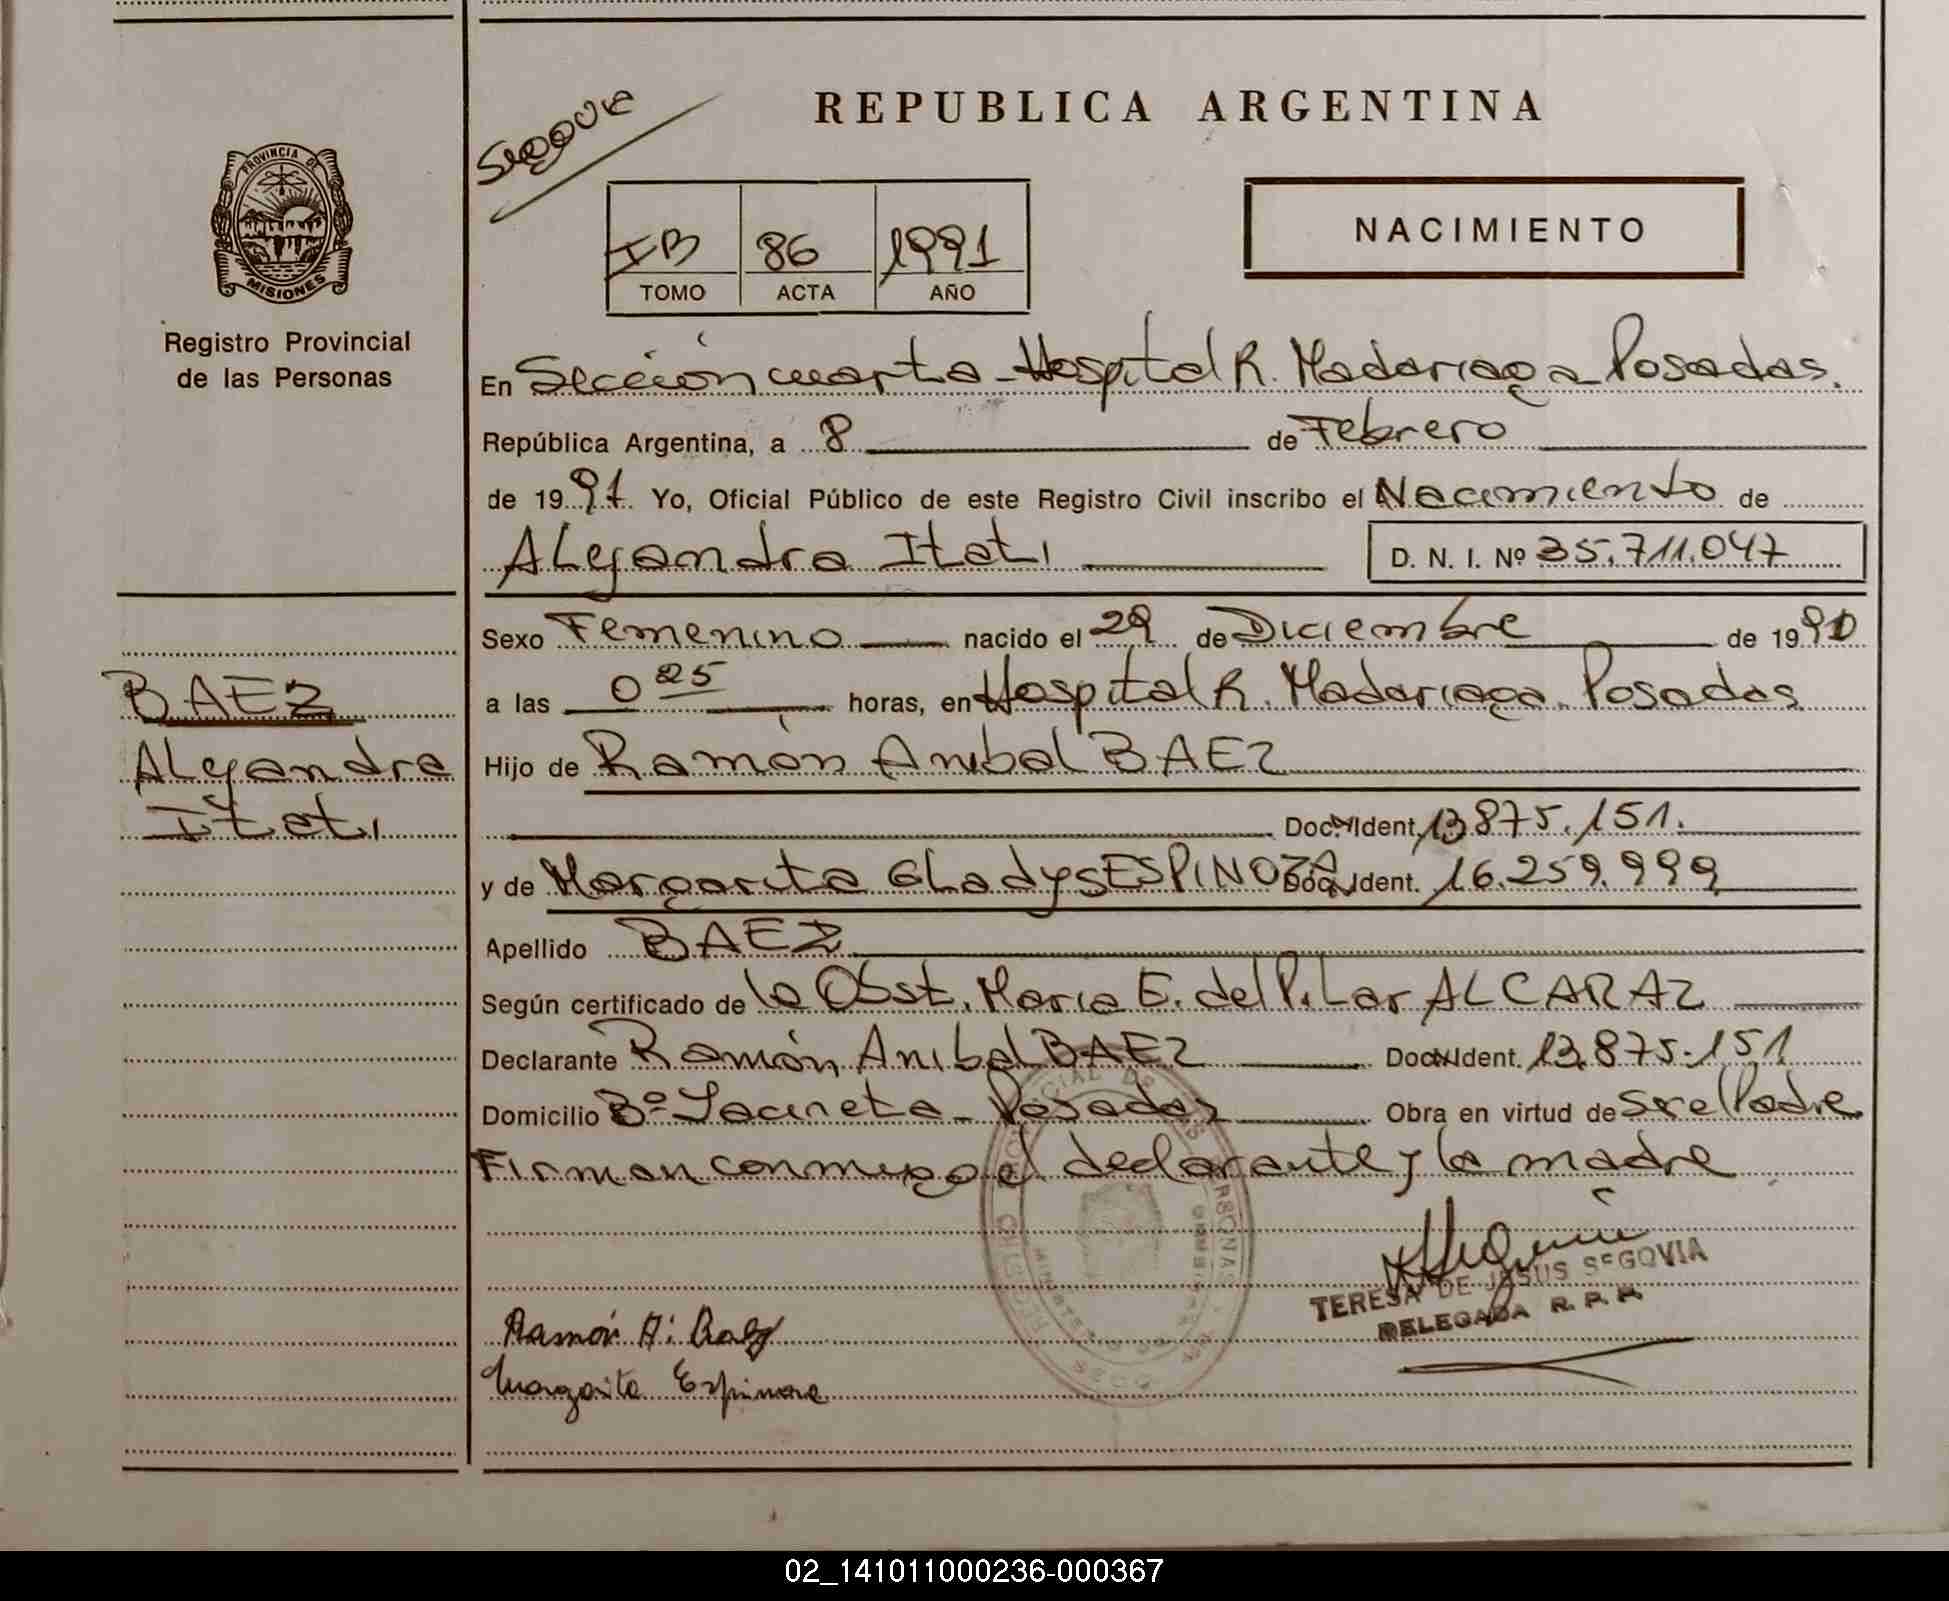 REPUBLICA ARGENTINA
PROVINCIA DE
MISIONES
Registro Provincial
de las Personas
IB 86 1991
TOMO ACTA AÑO
NACIMIENTO
En Sección cuarta - Hospital R. Madariaga - Posadas.
República Argentina, a 8 de Febrero
de 1991 Yo, Oficial Público de este Registro Civil inscribo el Nacimiento de
Alejandra Itati D. N. I. Nº 35.711.047
Sexo Femenino nacido el 29 de Diciembre de 1990
a las 0 25 horas, en Hospital R. Madariaga. Posadas
Hijo de Ramón Anibal BAEZ
Doc. Ident. 13875.151.
y de Margarita Gladys ESPINOZA Doc. Ident. 16.259.999
Apellido BAEZ
Según certificado de la Obst. Maria E. del Pilar ALCARAZ
Declarante Ramón Anibal BAEZ Doc. Ident. 13.875.151
Domicilio Bº Yacireta - Posadas Obra en virtud de ser el Padre
Firman conmigo el declarante y la madre
BAEZ
Alejandra
Itati
TERESA DE JESUS SEGOVIA
DELEGADA R. P. P.
Ramón A. Baez
Margarita Espinoza
02_141011000236-000367